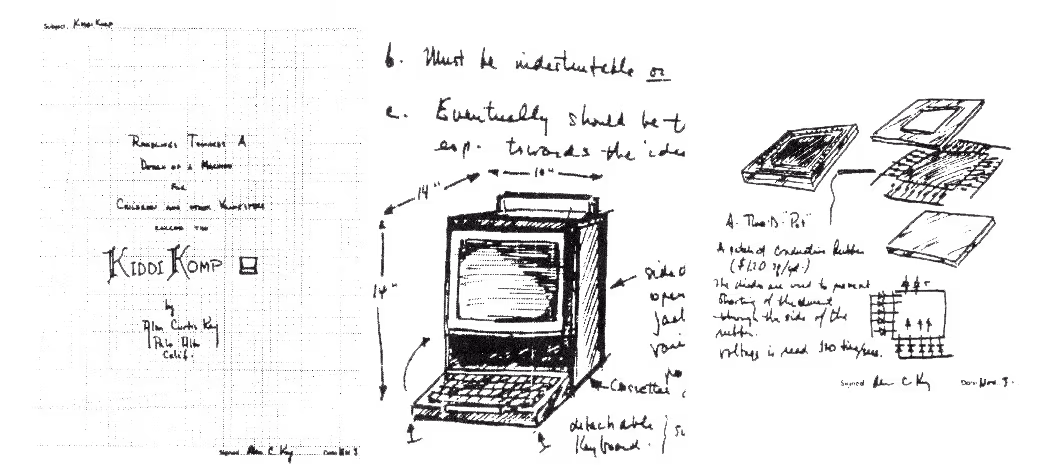 Subject. Kiddi Komp
Ramblings Towards A
Design of a Machine
For
Children and other Youngsters
called the
KIDDI KOMP
by
Alan Curtis Kay
Palo Alto
Calif.
Signed Alan C. Kay Date Nov 3
b. Must be indestructable or
c. Eventually should be t
esp. towards the idea
14"
10"
14"
side o
open
jack
vari
po
Cassettes
detachable
Keyboard.
A. Two-D. "Pot"
A patch of Conductive Rubber
The diodes are used to prevent
shorting of the current
through the side of the
rubber.
Voltage is read 340 times/sec.
Signed Alan C Kay Date Nov. 3.